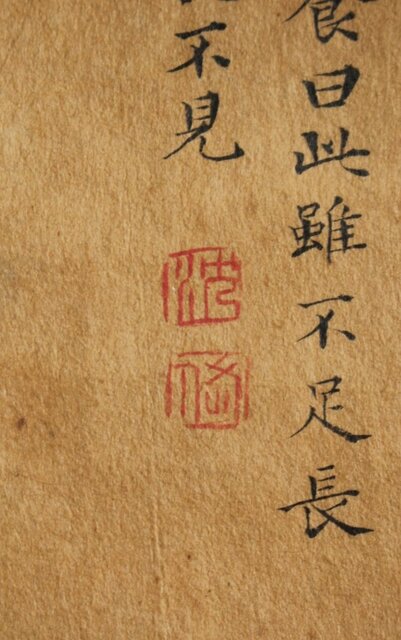 食曰此雖不足長
不見